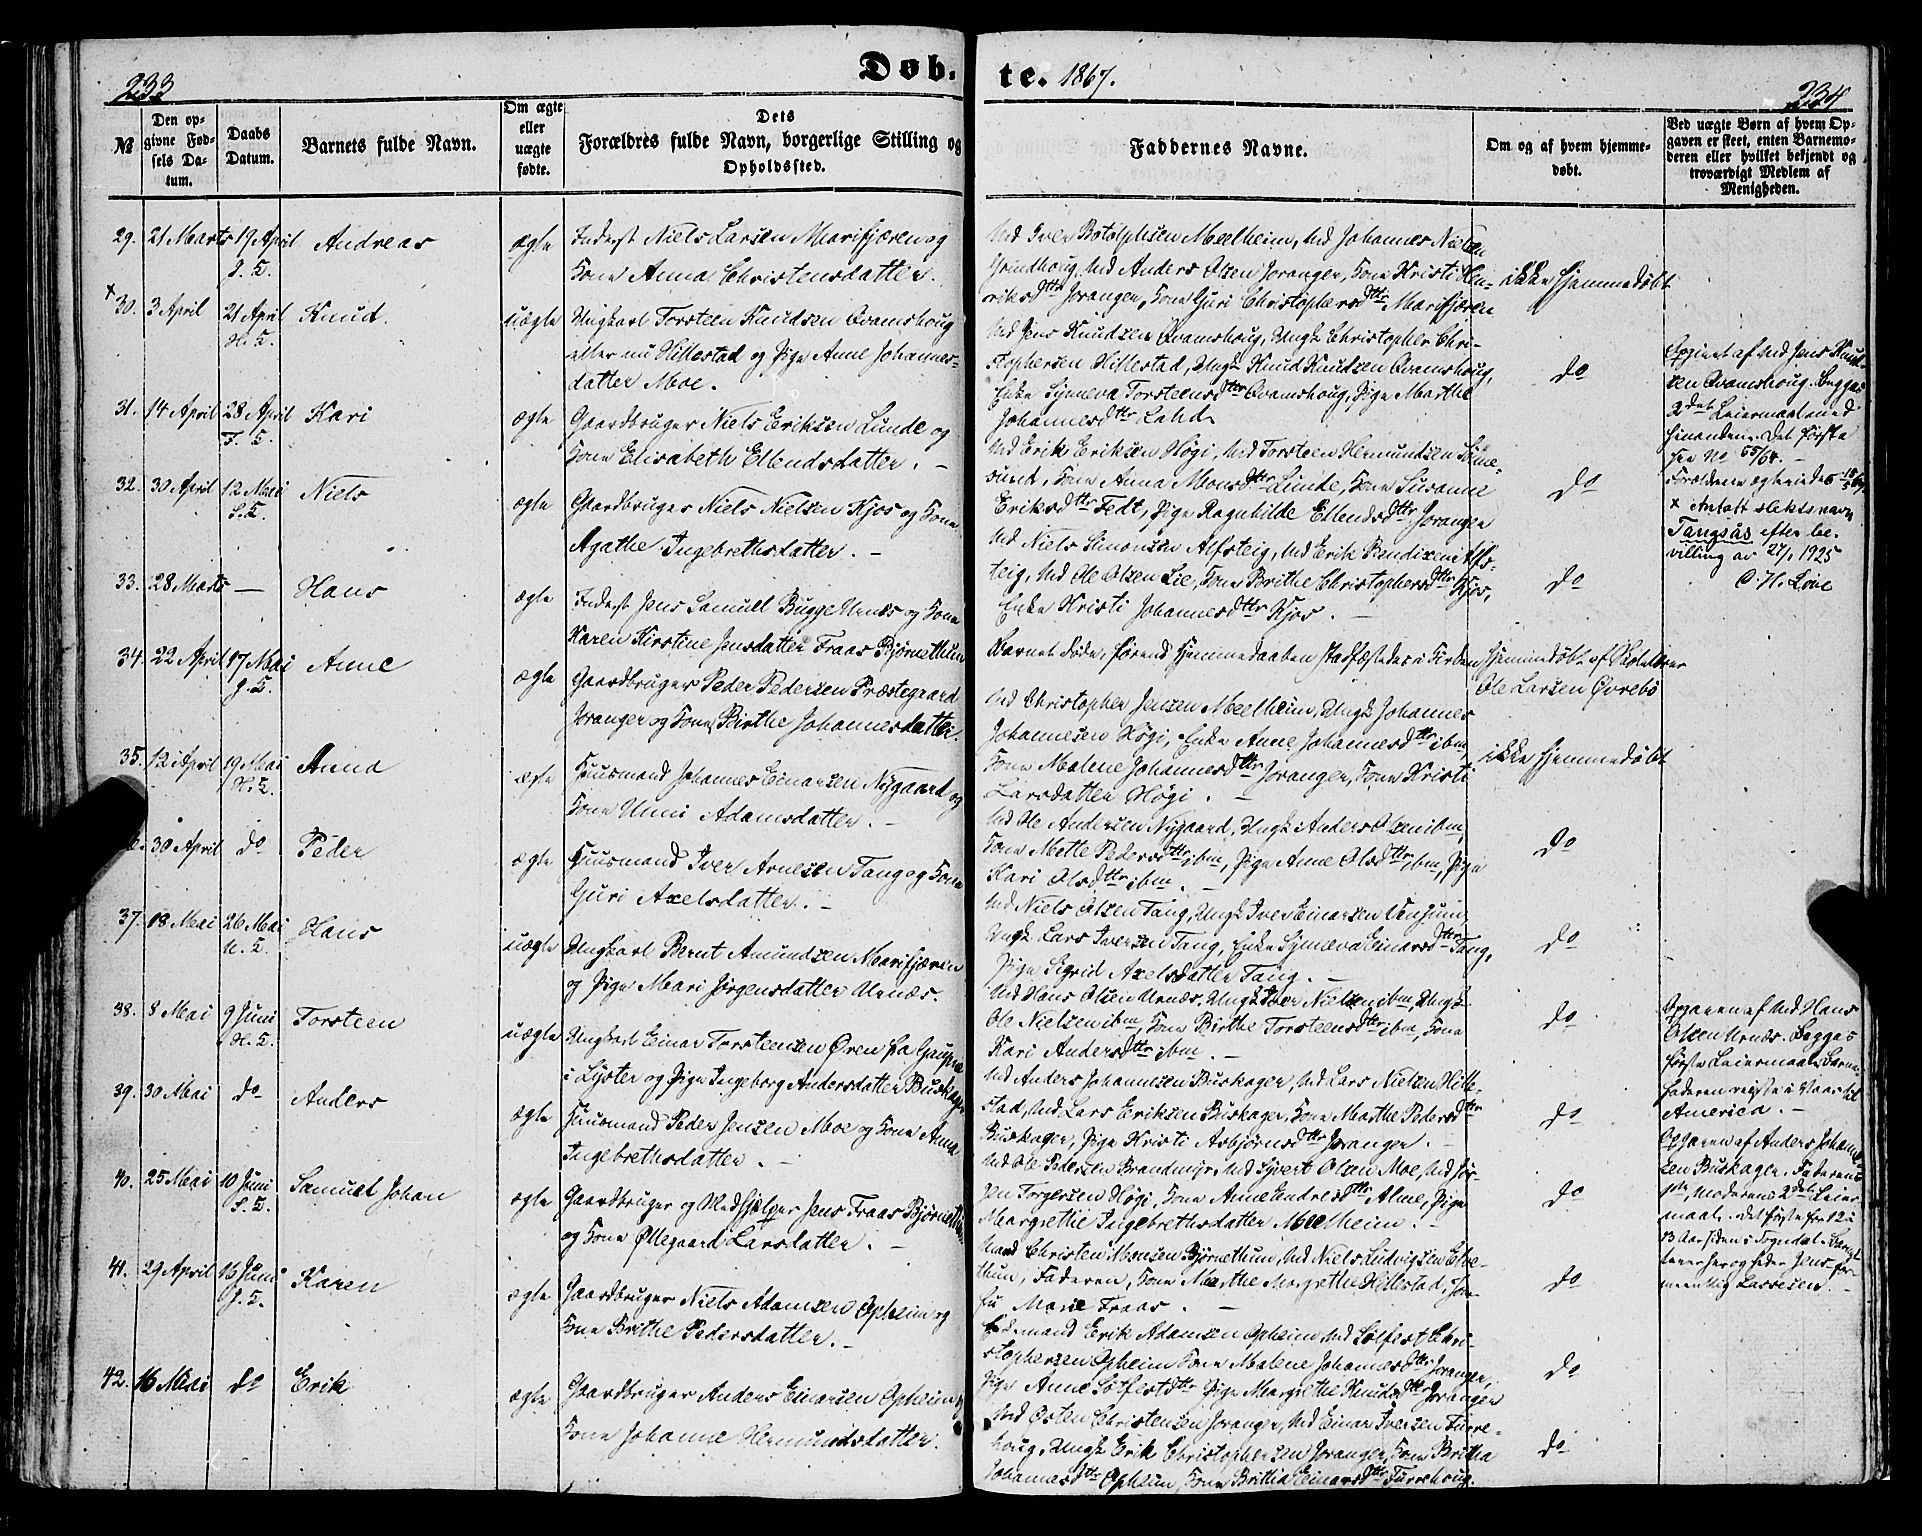 233
Døb-
te. 1867.
234
№
Den op-
givne Fød-
sels Da-
tum.
Daabs
Datum.
Barnets fulde Navn.
Om ægte
eller
uægte
fødte.
Dets
Forældres fulde Navn, borgerlige Stilling og
Opholdssted.
Faddernes Navne.
Om og af hvem hjemme-
døbt.
Ved uægte Børn af hvem Op-
gaven er skeet, enten Barnemo-
deren eller hvilket bekjendt og
troværdigt Medlem af
Menigheden.
29. 21 Marts 19 April Andreas ægte Inderst Niels Larsen Marifjæren og
J. K.
Kone Anna Christensdatter.
Md Iver Botolphsen Meelheim, Md Johannes Nielsen
Grindhoug, Md Anders Olsen Joranger, Kone Kristi Hen-
riksdttr Joranger, Kone Guri Christophersdttr Marifjæren
ikke hjemmedøbt
× 30. 3 April 21 April Knud. uægte Ungkarl Torsteen Knudsen Qvamshoug
H. K.
eller nu Hillestad og Pige Anne Johannes-
datter Moe.
Md Jens Knudsen Qvamshoug, Ungk Christopher Chri-
stophersen Hillestad, Ungk Knud Knudsen Qvamshoug,
Enke Synneva Torsteensdttr Qvamshoug, Pige Marthe
Johannesdttr Lahd
do
Opgivet af Md Jens Knud-
sen Qvamshoug. Begges
2det Leiermaal med
hinanden. Det første
see No 65/64. –
Forældrene ægteviedes
× Antatt slektsnavn
Tangsås efter be-
villing av 27/1 1925
31. 14 April 28 April Kari ægte Gaardbruger Niels Eriksen Lunde og
F. K.
Kone Elisabeth Ellendsdatter. –
Md Erik Eriksen Høgi, Md Torsteen Hermundsen
Kone Anna Monsdttr Lunde, Kone Susanne
Eriksdttr Fedt, Pige Ragnhilde Ellendsdttr Joranger
do
32. 30 April 12 Mai Niels ægte Gaardbruger Niels Nielsen Kjos og Kone
S. K.
Agathe Ingebrethsdatter. –
Md Niels Simonsen Alfsteig, Md Erik Alfs-
teig, Md Ole Olsen Lie, Kone Brithe Christophersdttr Kjos,
Enke Kristi Johannesdttr Kjos. –
do
33. 28 Marts — Hans ægte Inderst Jens Samuel Bugge Urnes og Kone
Karen Kirstine Jensdatter Fraas Bjørnethun
Barnet døde, førend Hjemmedaaben stadfæstedes i Kirken
Hjemmedøbt af Skolelærer
Ole Larsen Øvrebø
34. 22 April 17 Mai Anne ægte Gaardbruger Peder Pedersen Præstegaard
J. K.
Joranger og Kone Birthe Johannesdatter.
Md Christopher Jensen Meelheim, Ungk Johannes
Johannesen Høgi, Enke Anne Johannesdttr ibm,
Kone Malene Johannesdttr Joranger, Kone Kristi
Larsdatter Høgi. –
ikke hjemmedøbt
35. 12 April 19 Mai Anna ægte Huusmand Johannes Einarsen Nygaard og
H. K.
Kone Unni Adamsdatter. –
Md Ole Andersen Nygaard, Ungk Anders Olsen ibm,
Kone Mette Pedersdttr ibm, Pige Anne Olsdttr ibm, Pige
Kari Olsdttr ibm. –
do
30 April do Peder ægte Huusmand Iver Arnesen Tang og Kone
Guri Axelsdatter. –
Md Niels Olsen Tang, Ungk Iver Einarsen
Ungk Lars Iversen Tang, Enke Synneva Einarsdttr Tang,
Pige Sigrid Axelsdatter Tang. –
do
37. 18 Mai 26 Mai Hans uægte Ungkarl Bernt Amundsen Marifjæren
U. K.
og Pige Mari Jørgensdatter Urnæs.
Md Hans Olsen Urnæs, Ungk Iver Nielsen ibm, Ungk
Ole Nielsen ibm, Kone Birthe Torsteensdttr ibm, Kone
Kari Andersdttr ibm. –
do
Opgaven af Md Hans
Olsen Urnæs. Begges
første Leiermaal. Barne-
faderen reiste i Vaar til
America. –
38. 8 Mai 9 Juni Torsteen uægte Ungkarl Einar Torsteensen Øren fra Gaupne
H. K.
i Lyster og Pige Ingeborg Andersdatter Buskager
Md Anders Johannesen Buskager, Md Lars Nielsen Hille-
stad, Md Lars Eriksen Buskager, Kone Marthe Pedersdttr
Buskager, Pige Kristi Asbjørnsdttr Joranger. –
do
Opgaven af Anders Johanne-
sen Buskager. Faderens
1ste, Moderens 2det Leier-
maal. Det første for 12 à
13 Aar siden i Sogndal.
39. 30 Mai do Anders ægte Huusmand Peder Jensen Moe og Kone Anna
Ingebrethsdatter. –
Md Ole Pedersen Brandmyr, Md Sjvert Olsen Moe, Md Jør-
gen Torgersen Høgi, Kone Anne Endresdttr Alme, Pige
Margrethe Ingebrethsdatter Meelheim. –
do
40. 25 Mai 10 Juni Samuel Johan ægte Gaardbruger og Medhjelper Jens Fraas Bjørnethun
S. K.
og Kone Øllegaard Larsdatter. –
Md Christen Monsen Bjørnethun, Md Niels Ludvigsen
thun, Faderen, Kone Marthe Margrethe Hillestad,
Marie Fraas. –
do
41. 29 April 13 Juni Karen ægte Gaardbruger Niels Adamsen Opheim og
J. K.
Kone Brithe Pedersdatter. –
mand Erik Adamsen Opheim, Md Solfest Chri-
stophersen Opheim, Kone Malene Johannesdttr Joranger,
Pige Anne Solfestdttr Pige Margrethe Knudsdttr Joranger
do
42. 16 Mai do Erik ægte Gaardbruger Anders Einarsen Opheim og
Kone Johanne Hermundsdatter.
Md Østen Christensen Joranger, Md Einar Iversen Furre-
houg, Ungk Erik Christophersen Joranger, Kone Britha
Johannesdttr Opheim, Kone Brittha Einarsdttr Furrehoug.
do